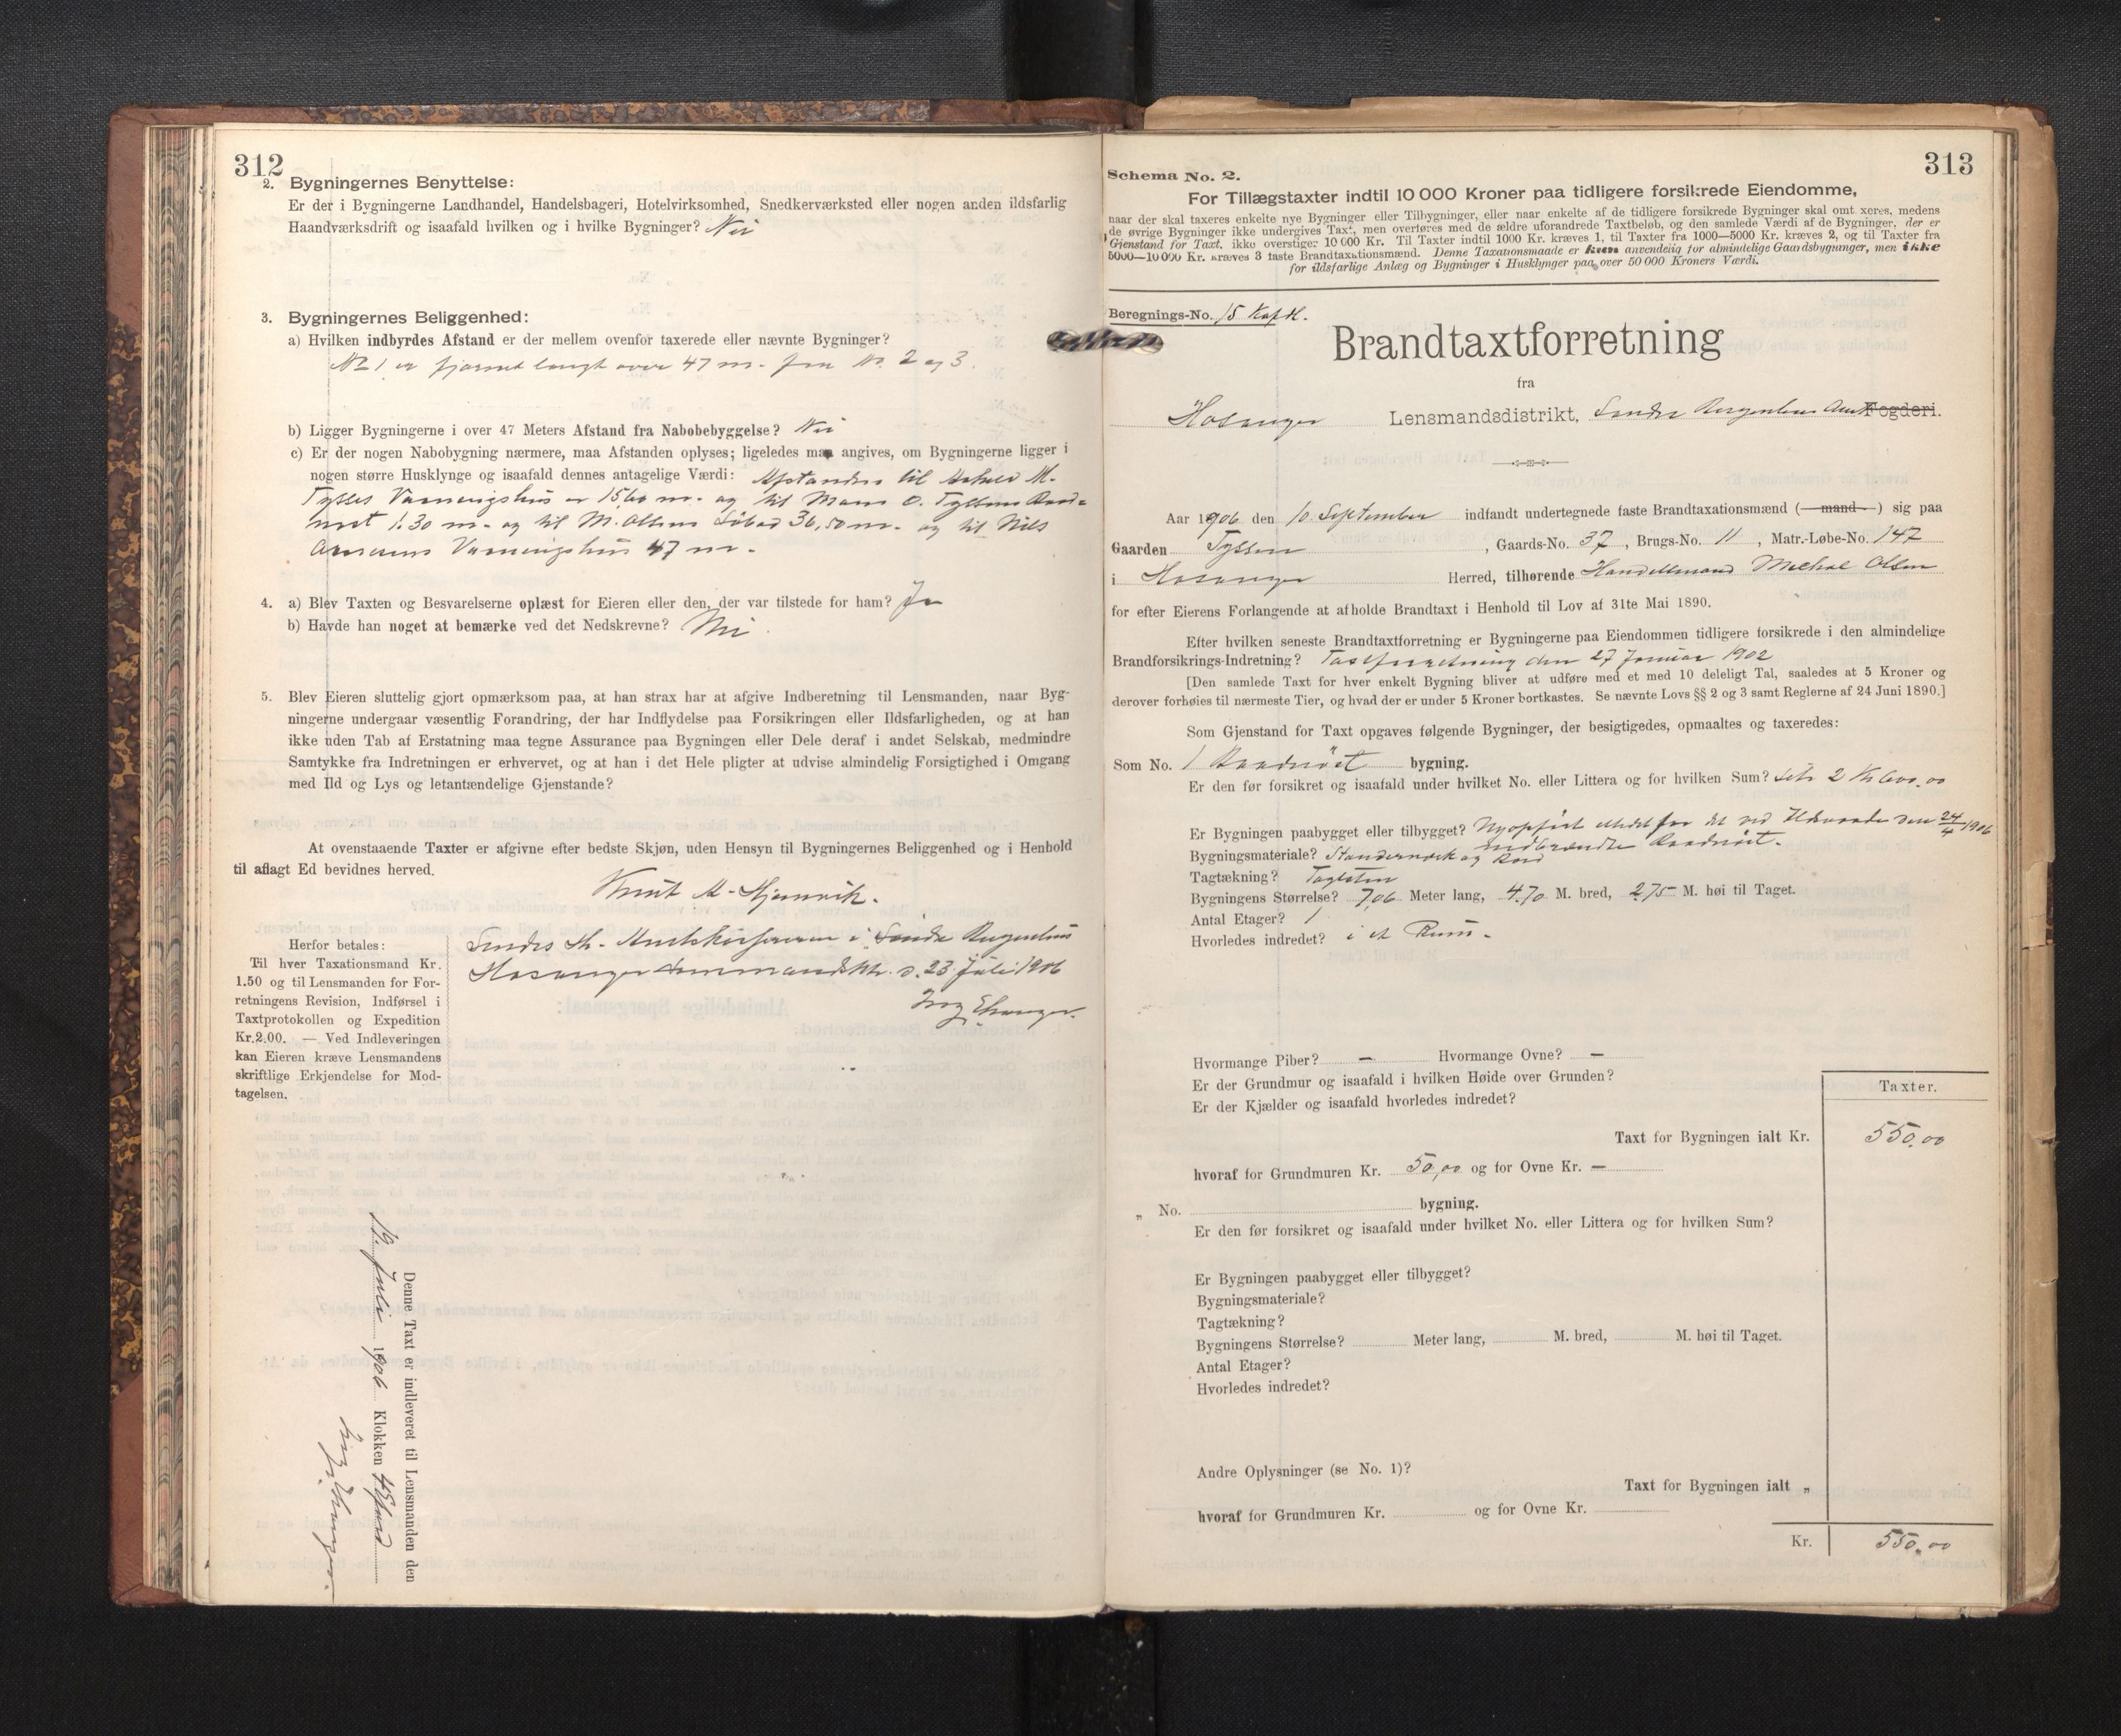 312
2. Bygningernes Benyttelse:
Er der i Bygningerne Landhandel, Handelsbageri, Hotelvirksomhed, Snedkerværksted eller nogen anden ildsfarlig
Haandværksdrift og isaafald hvilken og i hvilke Bygninger? Nei
3. Bygningernes Beliggenhed:
a) Hvilken indbyrdes Afstand er der mellem ovenfor taxerede eller nævnte Bygninger?
No 1 er fjernet langt over 47 m. fra No. 2 og 3.
b) Ligger Bygningerne i over 47 Meters Afstand fra Nabobebyggelse? Nei
c) Er der nogen Nabobygning nærmere, maa Afstanden oplyses; ligeledes maa angives, om Bygningerne ligger i
nogen større Husklynge og isaafald dennes antagelige Værdi: Afstanden til M.
Vaaningshus er 15,60 m. og til Mons O. Tyssens
1.30 m. og til M. Olsens 36,50 m. og til Nils
Vaaningshus 47 m.
4. a) Blev Taxten og Besvarelserne oplæst for Eieren eller den, der var tilstede for ham? Ja
b) Havde han noget at bemærke ved det Nedskrevne? Nei.
5. Blev Eieren sluttelig gjort opmærksom paa, at han strax har at afgive Indberetning til Lensmanden, naar Byg-
ningerne undergaar væsentlig Forandring, der har Indflydelse paa Forsikringen eller Ildsfarligheden, og at han
ikke uden Tab af Erstatning maa tegne Assurance paa Bygningen eller Dele deraf i andet Selskab, medmindre
Samtykke fra Indretningen er erhvervet, og at han i det Hele pligter at udvise almindelig Forsigtighed i Omgang
med Ild og Lys og letantændelige Gjenstande?
At ovenstaaende Taxter er afgivne efter bedste Skjøn, uden Hensyn til Bygningernes Beliggenhed og i Henhold
til aflagt Ed bevidnes herved.
Knut M. Hjemvik.
Herfor betales:
Til hver Taxationsmand Kr.
1.50 og til Lensmanden for For-
retningens Revision, Indførsel i
Taxtprotokollen og Expedition
Kr.2.00. — Ved Indleveringen
kan Eieren kræve Lensmandens
skriftlige Erkjendelse for Mod-
tagelsen.
Sendes Hr. i Søndre Bergenhus
Hosanger d. 23 Juli 1906
Denne Taxt er indleveret til Lensmanden den
19. Juli 1906 Klokken 4
313
Schema No. 2.
For Tillægstaxter indtil 10 000 Kroner paa tidligere forsikrede Eiendomme,
naar der skal taxeres enkelte nye Bygninger eller Tilbygninger, eller naar enkelte af de tidligere forsikrede Bygninger skal omt xeres, medens
de øvrige Bygninger ikke undergives Taxt, men overføres med de ældre uforandrede Taxtbeløb, og den samlede Værdi af de Bygninger, der er
Gjenstand for Taxt, ikke overstiger 10 000 Kr. Til Taxter indtil 1000 Kr. kræves 1, til Taxter fra 1000—5000 Kr. kræves 2, og til Taxter fra
5000—10 000 Kr. kræves 3 faste Brandtaxationsmænd. Denne Taxationsmaade er kun anvendelig for almindelige Gaardsbygninger, men ikke
for ildsfarlige Anlæg og Bygninger i Husklynger paa over 50 000 Kroners Værdi.
Beregnings-No. 15
Brandtaxtforretning
fra
Hosanger Lensmandsdistrikt, Søndre Bergenhus Amt Fogderi.
Aar 1906 den 10. September indfandt undertegnede faste Brandtaxationsmænd (—mand—) sig paa
Gaarden Tyssen, Gaards-No. 37, Brugs-No. 11, Matr.-Løbe-No. 147
i Hosanger Herred, tilhørende Handelsmand Mikal Olsen
for efter Eierens Forlangende at afholde Brandtaxt i Henhold til Lov af 31te Mai 1890.
Efter hvilken seneste Brandtaxtforretning er Bygningerne paa Eiendommen tidligere forsikrede i den almindelige
Brandforsikrings-Indretning? Taxtforretning den 27 Januar 1902
[Den samlede Taxt for hver enkelt Bygning bliver at udføre med et med 10 deleligt Tal, saaledes at 5 Kroner og
derover forhøies til nærmeste Tier, og hvad der er under 5 Kroner bortkastes. Se nævnte Lovs §§ 2 og 3 samt Reglerne af 24 Juni 1890.]
Som Gjenstand for Taxt opgaves følgende Bygninger, der besigtigedes, opmaaltes og taxeredes:
Som No. 1 Baadnöst bygning.
Er den før forsikret og isaafald under hvilket No. eller Littera og for hvilken Sum? Litr. 2 Kr. 600,00
Er Bygningen paabygget eller tilbygget? Nyopført istedetfor det ved Ildsvaade den 24/4 1906
nedbrændte Baadnöst.
Bygningsmateriale? Stenderværk og Bord
Tagtækning? Taglsten
Bygningens Størrelse? 7,06 Meter lang, 4.70 M. bred, 2,75 M. høi til Taget.
Antal Etager? 1
Hvorledes indredet? i et Rum.
Hvormange Piber? — Hvormange Ovne? —
Er der Grundmur og isaafald i hvilken Høide over Grunden?
Er der Kjælder og isaafald hvorledes indredet?
Taxter.
Taxt for Bygningen ialt Kr. 550,00
hvoraf for Grundmuren Kr. 50,00 og for Ovne Kr. —
„ No. bygning.
Er den før forsikret og isaafald under hvilket No. eller Littera og for hvilken Sum?
Er Bygningen paabygget eller tilbygget?
Bygningsmateriale?
Tagtækning?
Bygningens Størrelse? Meter lang, M. bred, M. høi til Taget.
Antal Etager?
Hvorledes indredet?
Andre Oplysninger (se No. 1)?
Taxt for Bygningen ialt „
hvoraf for Grundmuren Kr. og for Ovne Kr.
Kr. 550,00